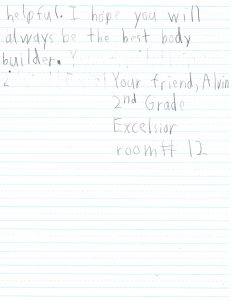 helpful. I hope you will
always be the best body
builder.
Your friend, Alvin
2nd Grade
Excelsior
room# 12